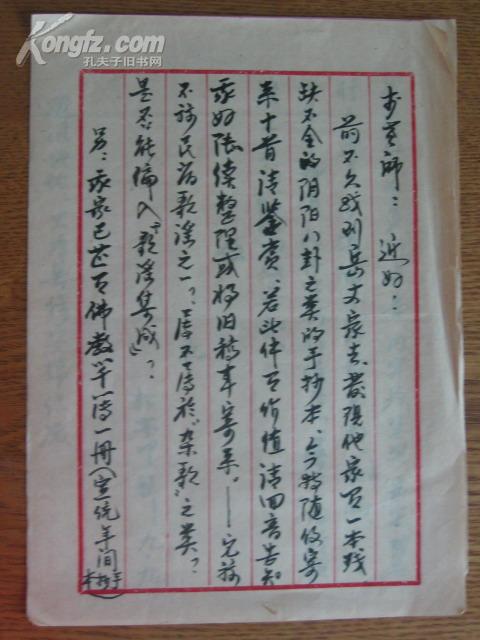 Kongfz.com
孔夫子旧书网
老师： 近好：
前不久我到岳丈家去，发现他家有一本残
缺不全的阴阳八卦之类的手抄本，今特随信寄
来十首请鉴赏、若此件有价值请回音告知
我好陆续整理或将旧稿本寄来。——它该
不该民间歌谣之一？属不属於“杂歌”之类？
是否能编入“歌谣集成”？
另：我家已甚有佛教 一传一册（宣统年间
手抄本）